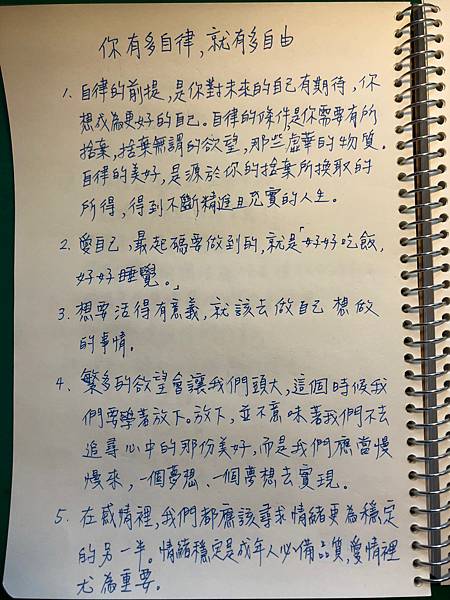 你有多自律,就有多自由
1. 自律的前提,是你對未來的自己有期待,你
想成為更好的自己。自律的條件,是你需要有所
捨棄,捨棄無謂的欲望,那些虛華的物質。
自律的美好,是源於你的捨棄所換取的
所得,得到不斷精進且充實的人生。
2. 愛自己,最起碼要做到的,就是「好好吃飯,
好好睡覺。」
3. 想要活得有意義,就該去做自己想做
的事情。
4. 繁多的欲望會讓我們頭大,這個時候我
們要學著放下。放下,並不意味著我們不去
追尋心中的那份美好,而是我們應當慢
慢來,一個夢想、一個夢想去實現。
5. 在感情裡,我們都應該尋求情緒更為穩定
的另一半。情緒穩定是成年人必備品質,愛情裡
尤為重要。